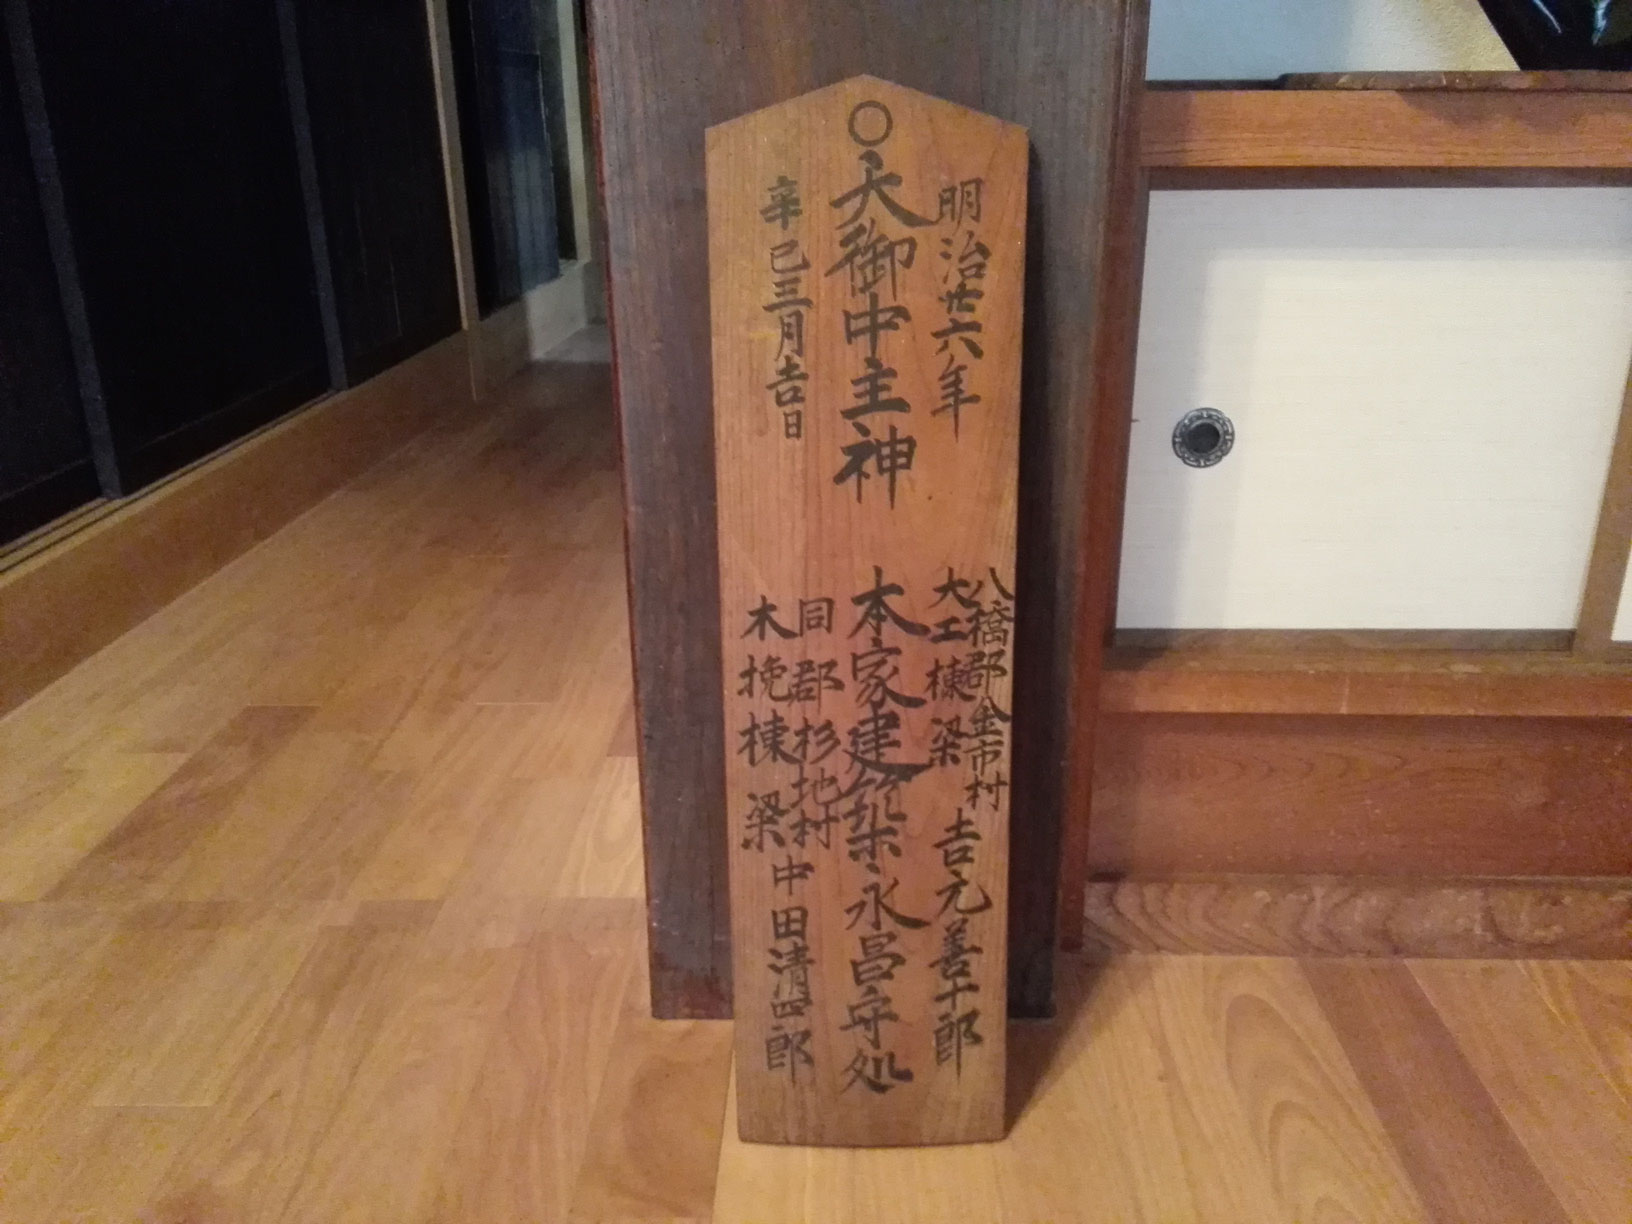 明治廿六年
八橋郡金市村
大工棟梁 吉元善十郎
○大御中主神 本家建築永昌守処
辛巳三月吉日
同郡杉地村
木挽棟梁 中田清四郎